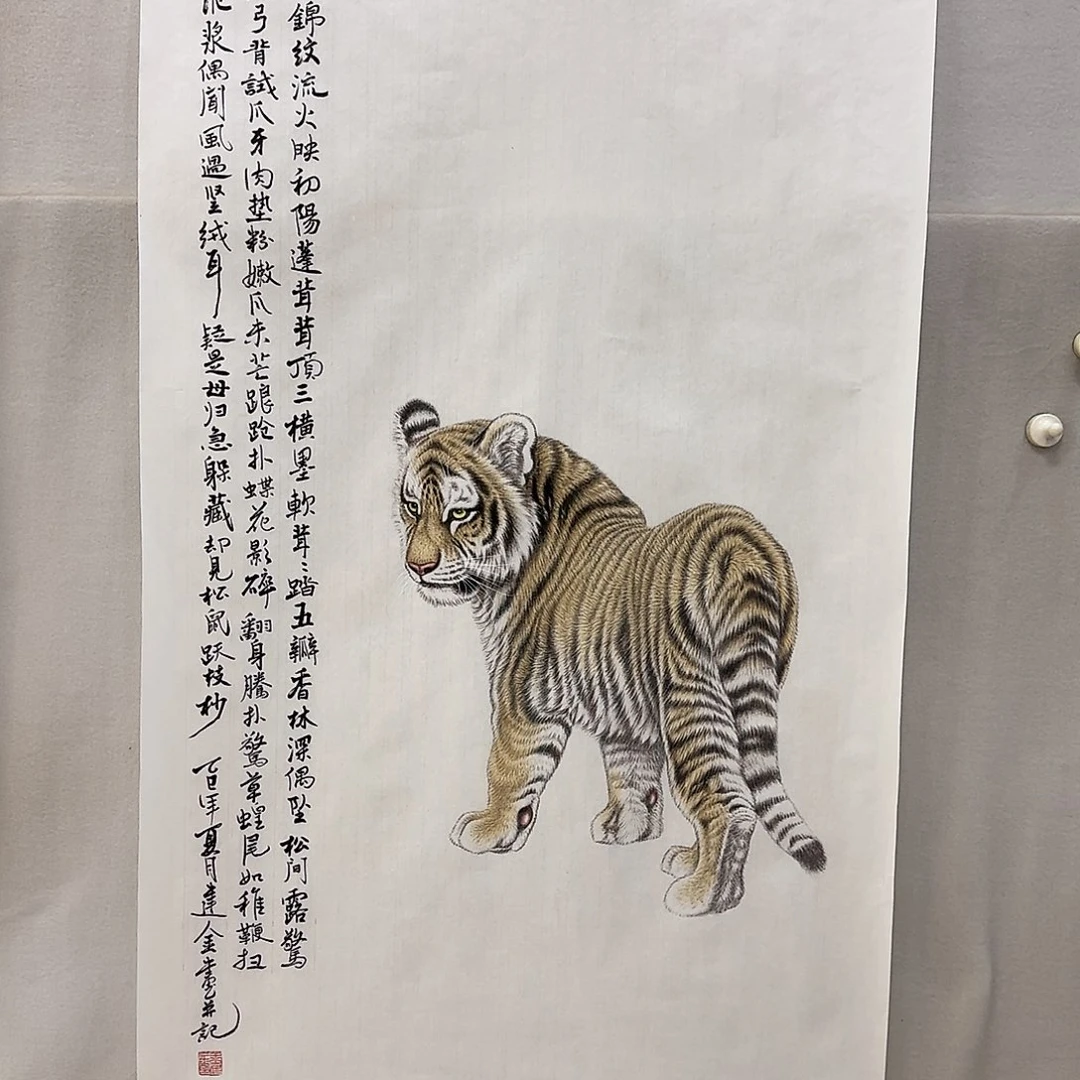 錦紋流火映初陽蓬茸茸頂三橫墨軟茸〻踏五瓣香林深偶墜松间露驚
弓背試爪牙肉墊粉嫩爪未芒踉跄扑蝶花影碎翻身騰扑驚草蜢尾如稚鞭扫
浆偶闻風過竖绒耳疑是母归急躲藏却見松鼠跃枝杪
乙巳年夏月達金畫并記